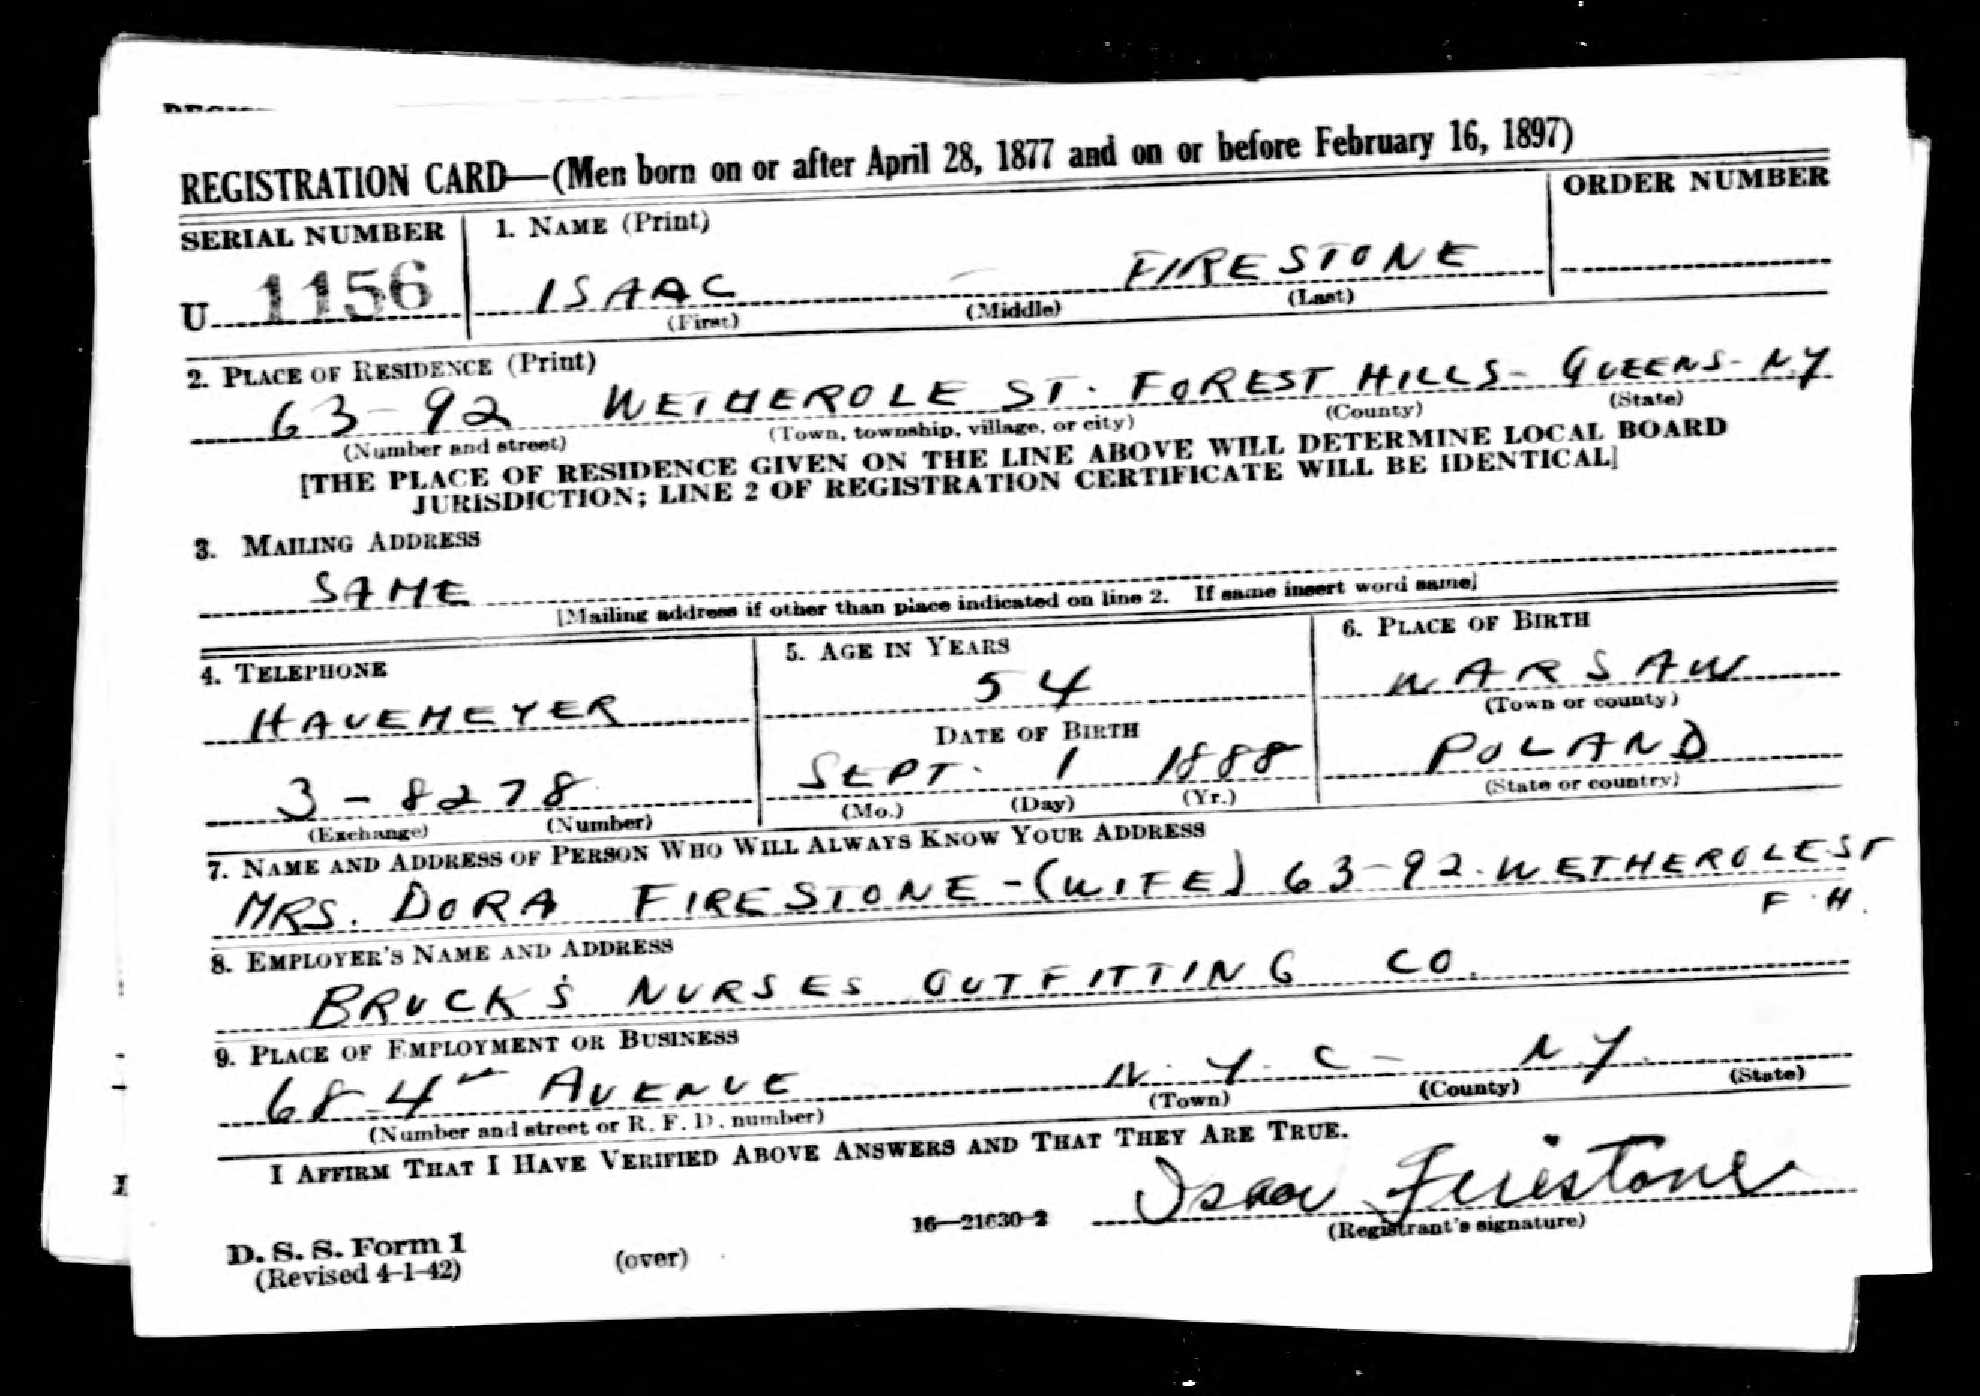 REGISTRATION CARD—(Men born on or after April 28, 1877 and on or before February 16, 1897)
SERIAL NUMBER
1. NAME (Print)
ORDER NUMBER
U 1156
ISAAC — FIRESTONE
(First) (Middle) (Last)
2. PLACE OF RESIDENCE (Print)
63-92 WETHEROLE ST. FOREST HILLS - QUEENS - NY
(Number and street) (Town, township, village, or city) (County) (State)
[THE PLACE OF RESIDENCE GIVEN ON THE LINE ABOVE WILL DETERMINE LOCAL BOARD
JURISDICTION; LINE 2 OF REGISTRATION CERTIFICATE WILL BE IDENTICAL]
3. MAILING ADDRESS
SAME
[Mailing address if other than place indicated on line 2. If same insert word same]
4. TELEPHONE
HAVEMEYER
3-8278
(Exchange) (Number)
5. AGE IN YEARS
54
DATE OF BIRTH
SEPT. 1 1888
(Mo.) (Day) (Yr.)
6. PLACE OF BIRTH
WARSAW
(Town or county)
POLAND
(State or country)
7. NAME AND ADDRESS OF PERSON WHO WILL ALWAYS KNOW YOUR ADDRESS
MRS. DORA FIRESTONE - (WIFE) 63-92. WETHEROLE ST
F. H.
8. EMPLOYER'S NAME AND ADDRESS
BRUCK'S NURSES OUTFITTING CO.
9. PLACE OF EMPLOYMENT OR BUSINESS
68-4th AVENUE N.Y.C - N.Y.
(Number and street or R. F. D. number) (Town) (County) (State)
I AFFIRM THAT I HAVE VERIFIED ABOVE ANSWERS AND THAT THEY ARE TRUE.
Isaac Firestone
(Registrant's signature)
D. S. S. Form 1
(Revised 4-1-42)
(over)
16—21630-2